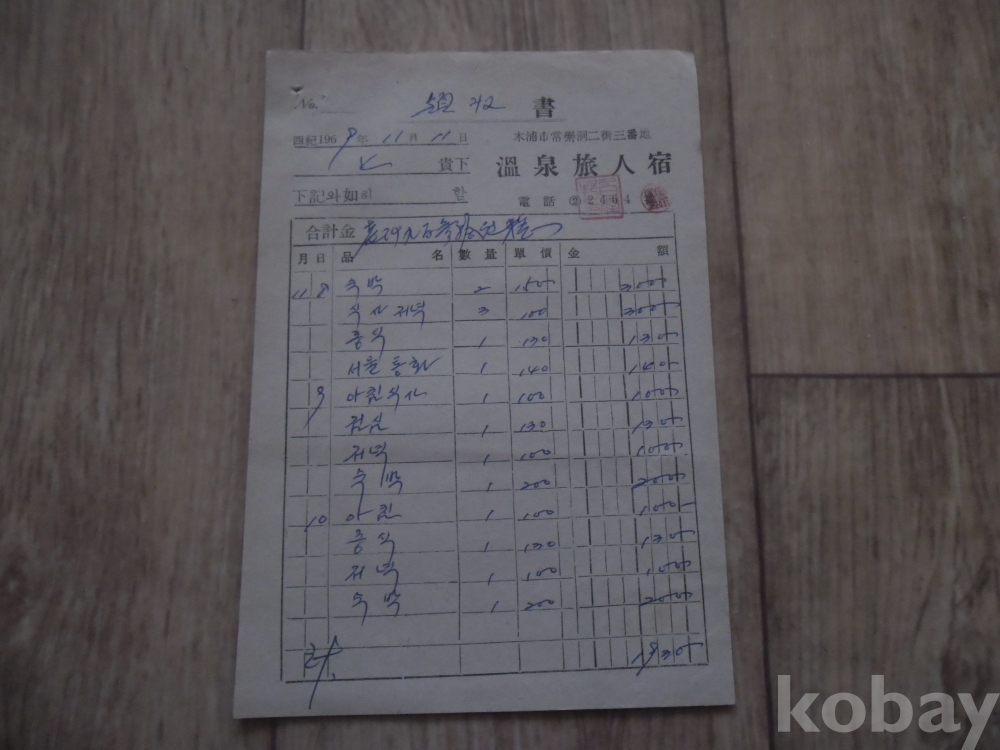 No.
領収 書
西紀1969年 11月 11日
木浦市常樂洞二街三番地
貴下
溫泉旅人宿
下記와如히 함
電話 ② 2464
合計金
月 日 品名 數量 單價 金額
11 8 숙박 2 150 300
식사 저녁 3 100 300
중식 1 130 130
서울 통화 1 140 140
9 아침식사 1 100 100
점심 1 130 130
저녁 1 100 100
숙박 1 200 200
10 아침 1 100 100
중식 1 130 130
저녁 1 100 100
숙박 1 200 200
計 1930
kobay